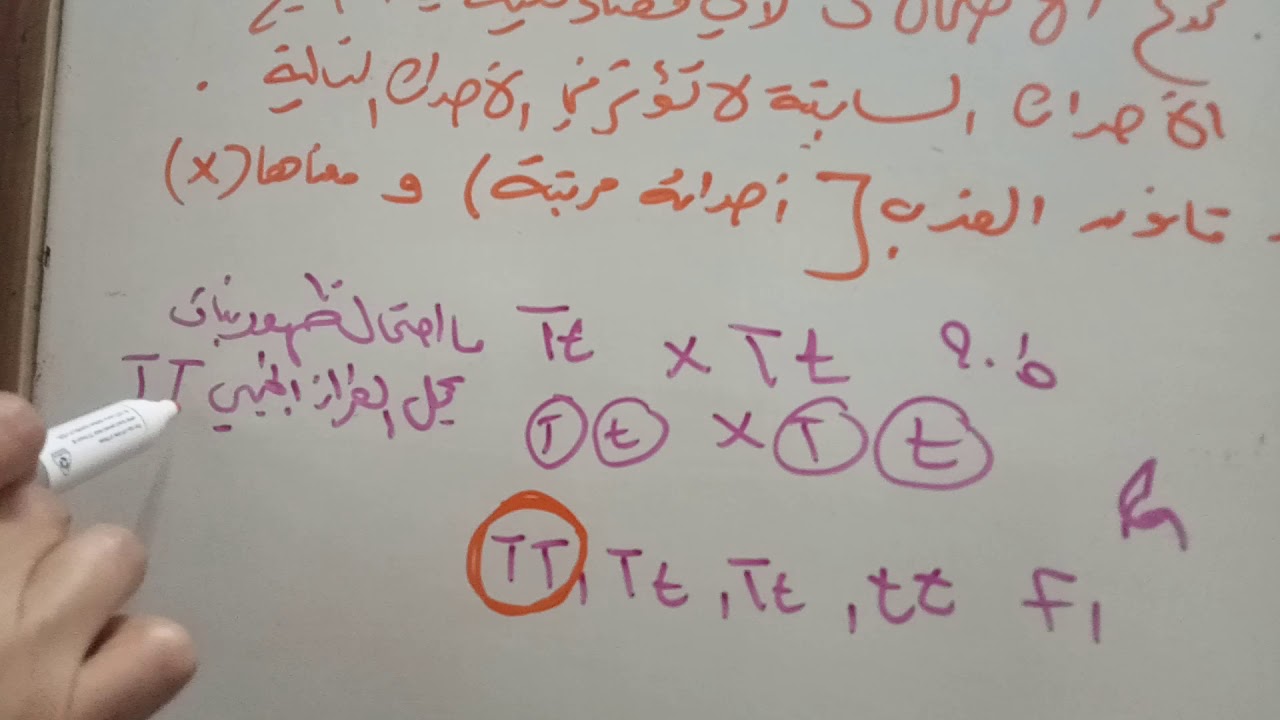 الأحداث السابقة لا تؤثر في الأحداث التالية .
- قانون الضرب [ أحداث مرتبة ) و معناها (x)
ط . ج Tt x Tt
ما احتمال ظهور نبات
يحمل الطراز الجيني TT
T t x T t
TT , Tt , Tt , tt F1